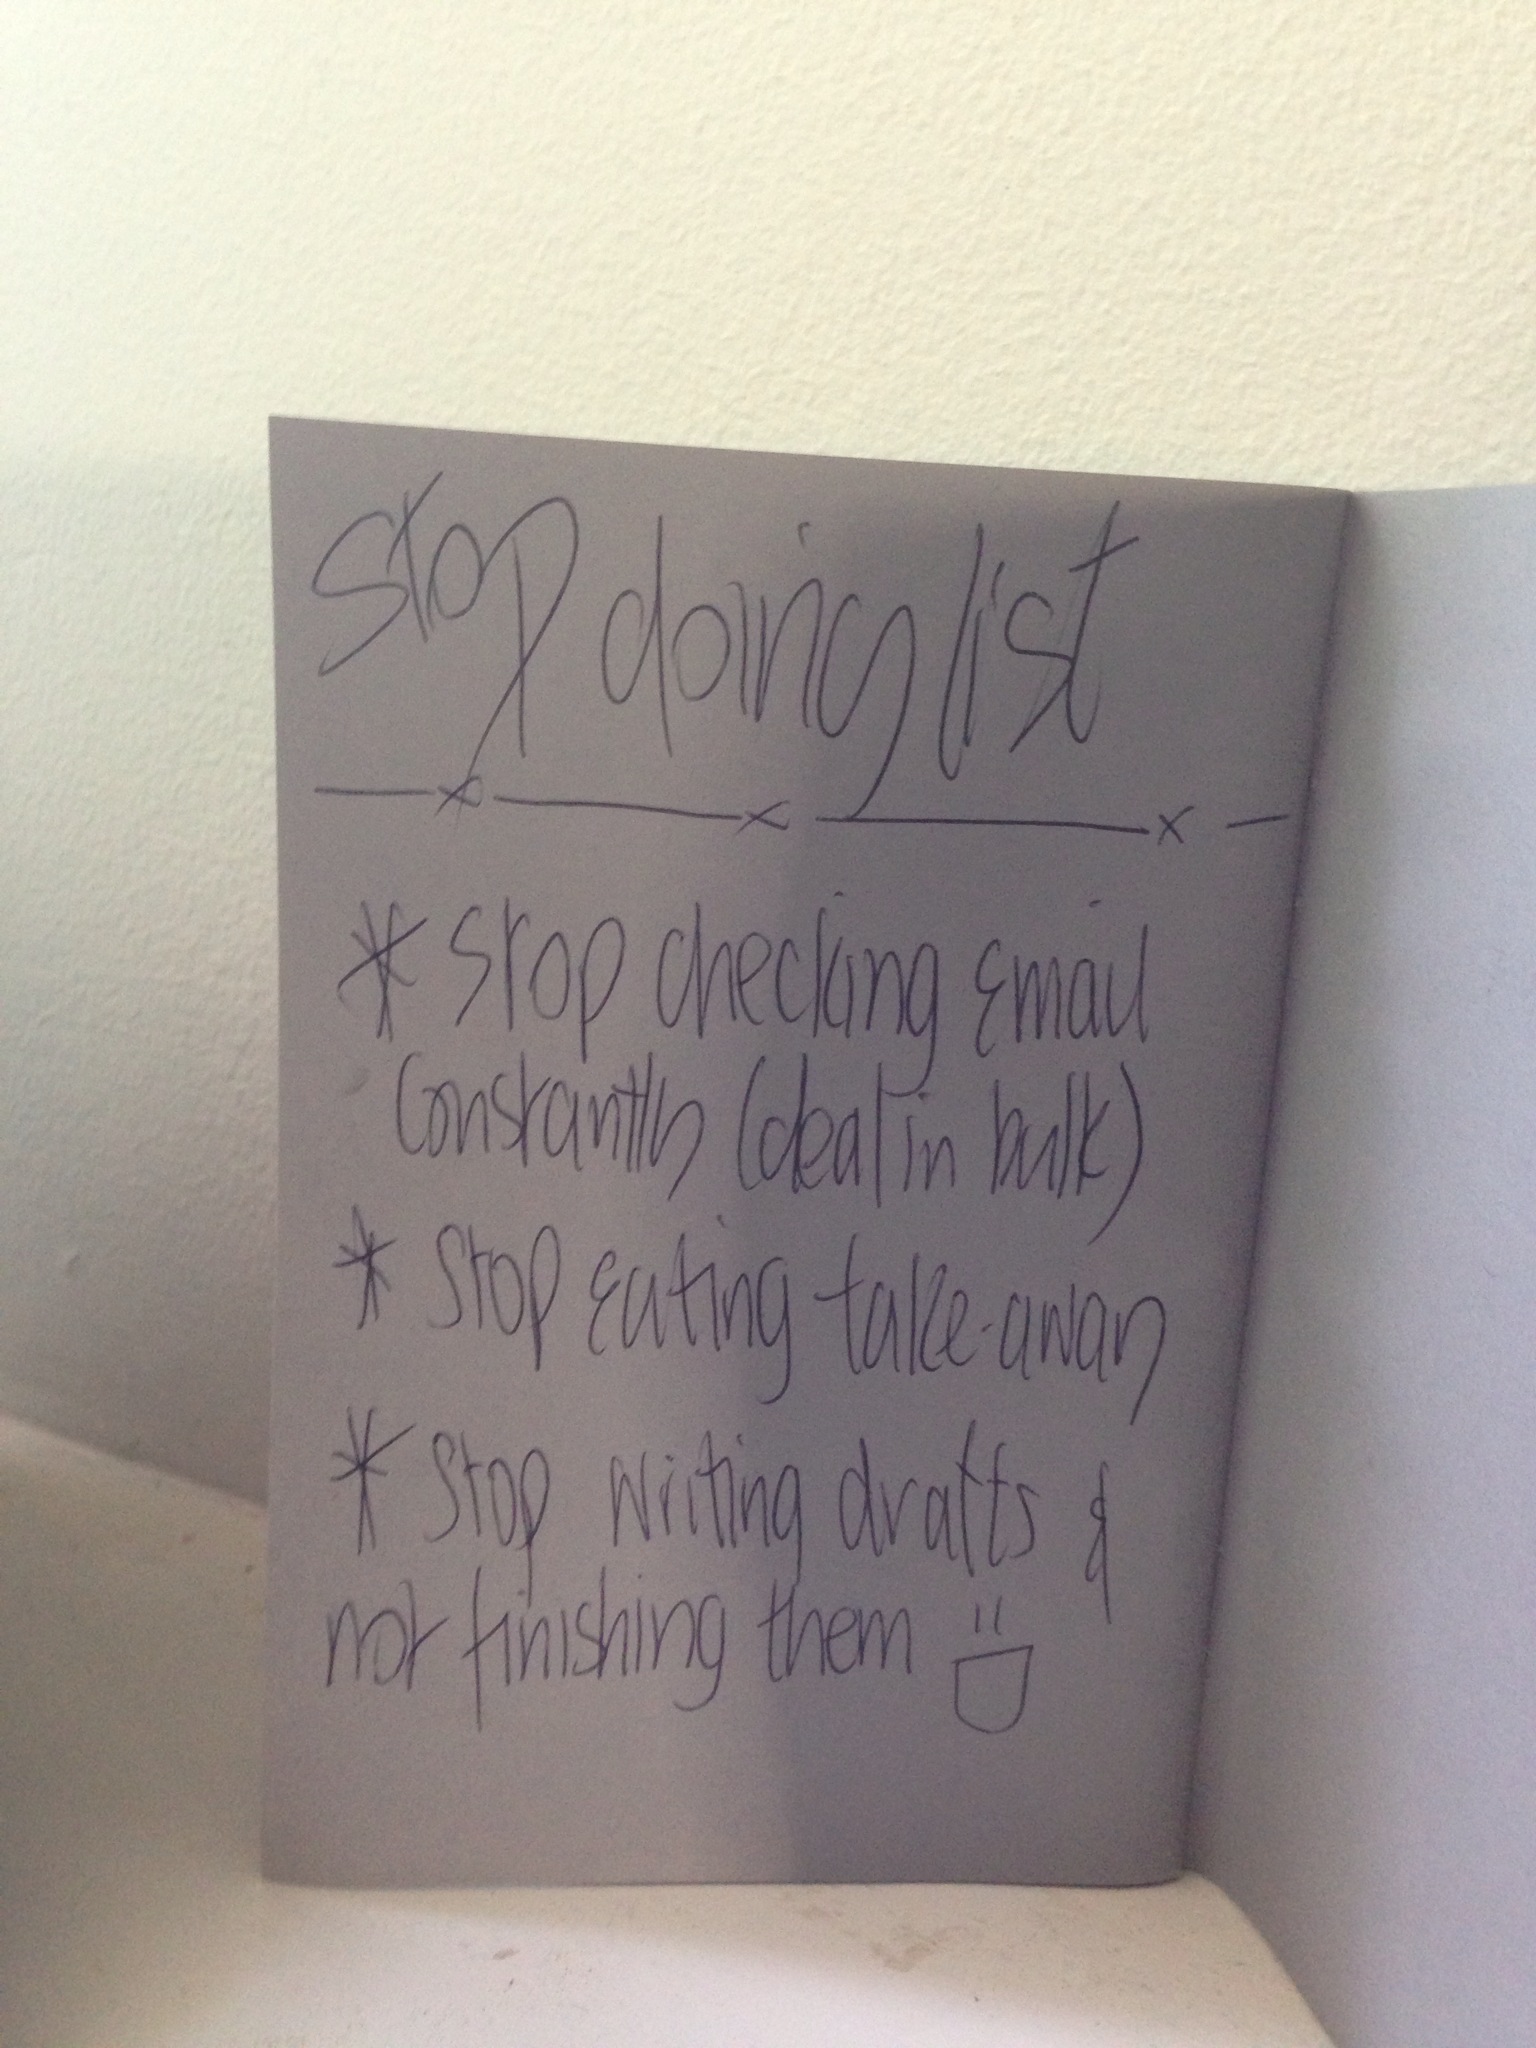 Stop doing list
* Stop checking Email
Constantly (deal in bulk)
* Stop Eating take-away
* Stop writing drafts &
not finishing them